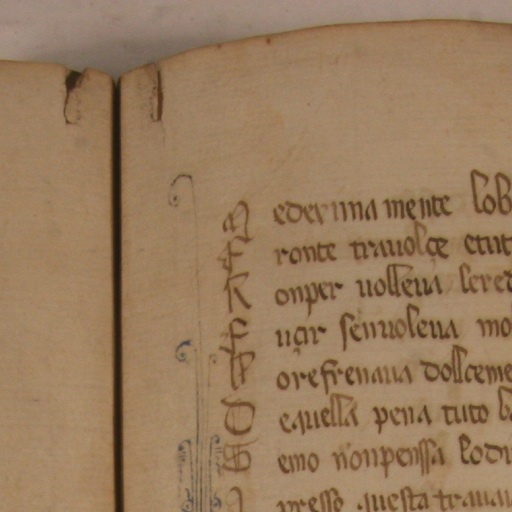 M ederima mente lob
F ronte trauolçe etut
R onper uolleua lered
F ucir senuoleua mo
P orefrenaua dollceme
D equella pena tuto ba
S emo nonpenssa lodi
presso questa trauau